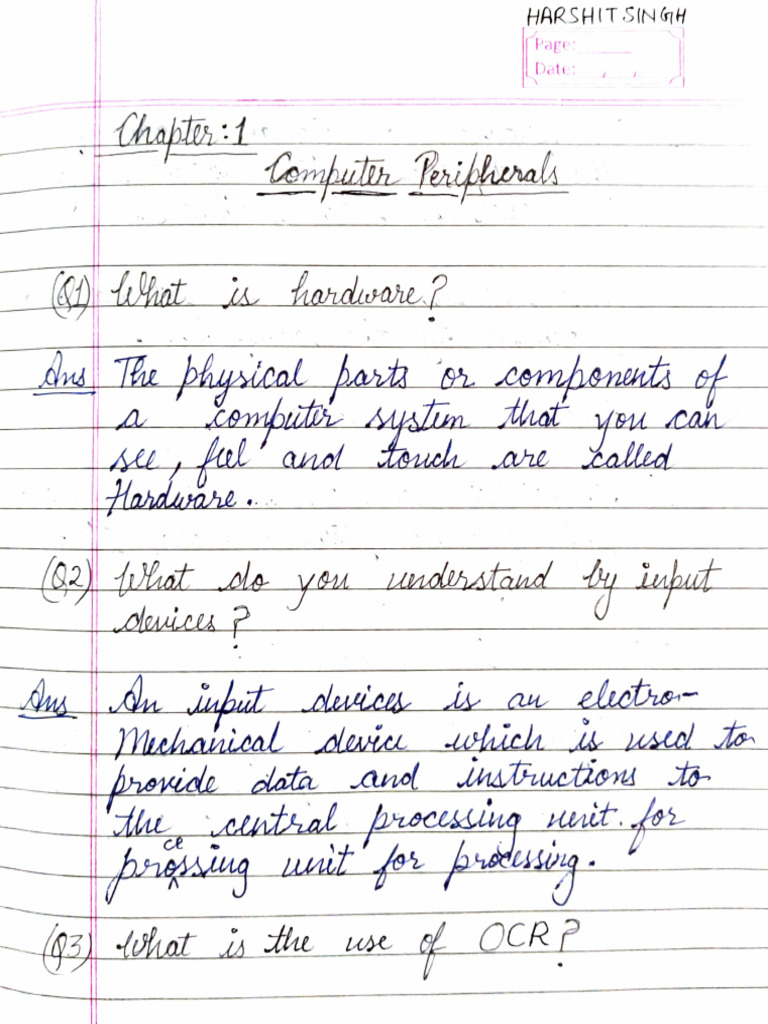 HARSHIT SINGH
Page:
Date:
Chapter:1
Computer Peripherals
(Q1) What is hardware?
Ans The physical parts or components of
a computer system that you can
see, feel and touch are called
Hardware.
(Q2) What do you understand by input
devices?
Ans An input devices is an electro-
Mechanical device which is used to
provide data and instructions to
the central processing unit. for
processing unit for processing.
(Q3) What is the use of OCR?